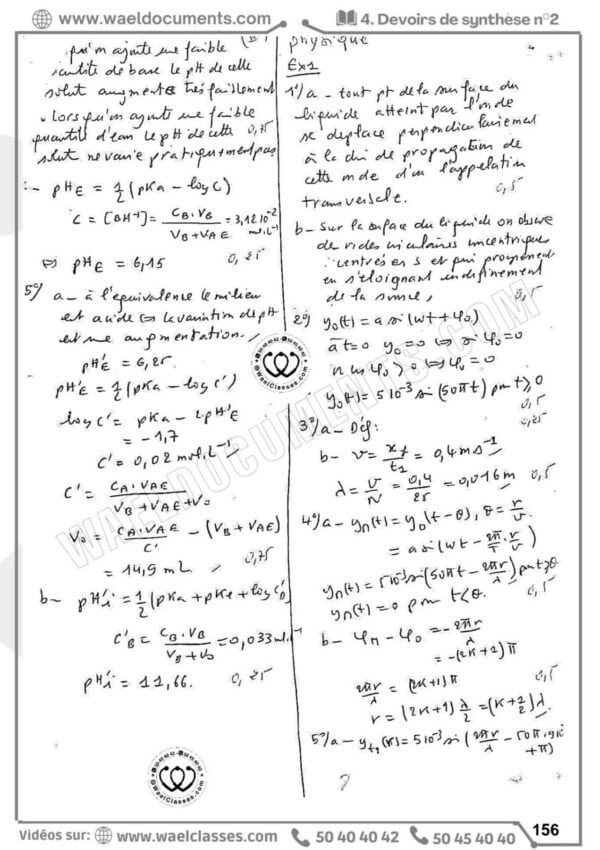 www.waeldocuments.com
4. Devoirs de synthèse n°2
qu'on ajoute une faible
quantité de base le pH de cette
solut augmente très faiblement
• Lorsqu'on ajoute une faible
quantité d'eau le pH de cette 0,75
solut ne varie pratiquement pas
- pHE = 1/2 (pKa - log C)
C = [BH+] = CB.VB / VB+VAE = 3,12 10^-2 mol.L-1
⇔ pHE = 6,15 0,25
5°) a - à l'équivalence le milieu
est acide ⇔ la variation de pH
est une augmentation.
pH'E = 6,25.
pH'E = 1/2 (pKa - log C')
log C' = pKa - 2pH'E
= -1,7
C' = 0,02 mol.L-1
C' = CA.VAE / VB+VAE+V0
V0 = CA.VAE / C' - (VB+VAE)
= 14,9 mL 0,75
b - pH'i = 1/2 (pKa + pKe + log C'B)
C'B = CB.VB / VB+V0 = 0,033 mol.L-1
pH'i = 11,66. 0,25
physique
Ex1
1°/a - tout pt de la surface du
liquide atteint par l'onde
se deplace perpendiculairement
à la di de propagation de
cette onde d'où l'appelation
transversale. 0,5
b - sur la surface du liquide on observe
de rides circulaires concentriques
centrées en S et qui progressent
en s'eloignant indefinement
de la source, 0,5
2°) y0(t) = a sin(wt + φ0)
à t=0 y0=0 ⇔ sin φ0 = 0
φ0 = 0
y0(t) = 5 10^-3 sin(50πt) pour t≥0
0,5
3°/a - Déf: 0,25
b - v = xf / t2 = 0,4 m s-1
λ = v/N = 0,4/25 = 0,016 m 0,5
4°/a - yM(t) = y0(t-θ), θ = r/v
= a sin(wt - 2π/T . r/v)
yM(t) = 5 10^-3 sin(50πt - 2πr/λ) pour t≥θ
yM(t) = 0 pour t<θ. 0,5
b - φM - φ0 = -2πr/λ
= -(2K+1)π
2πr/λ = (2K+1)π 0,5
r = (2K+1) λ/2 = (K+1/2) λ
5°/a - yt1(r) = 5 10^-3 sin(2πr/λ
+π)
@WaelClasses.com
@WaelClasses.com
WAELDOCUMENTS.COM
Vidéos sur: www.waelclasses.com 50 40 40 42 50 45 40 40
156